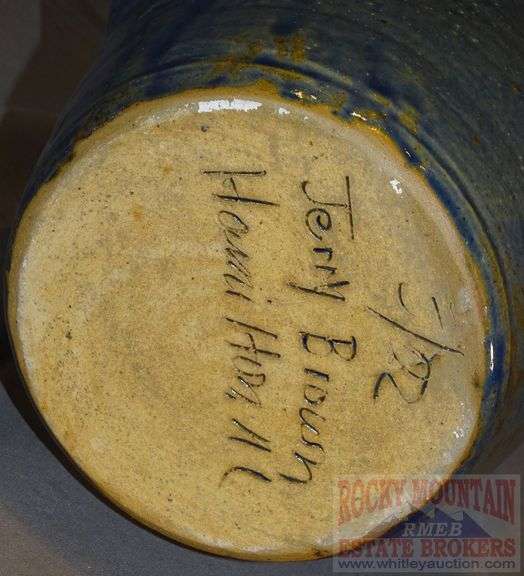 Jerry Brown
Hamilton Al
ROCKY MOUNTAIN
RMEB
ESTATE BROKERS
www.whitleyauction.com